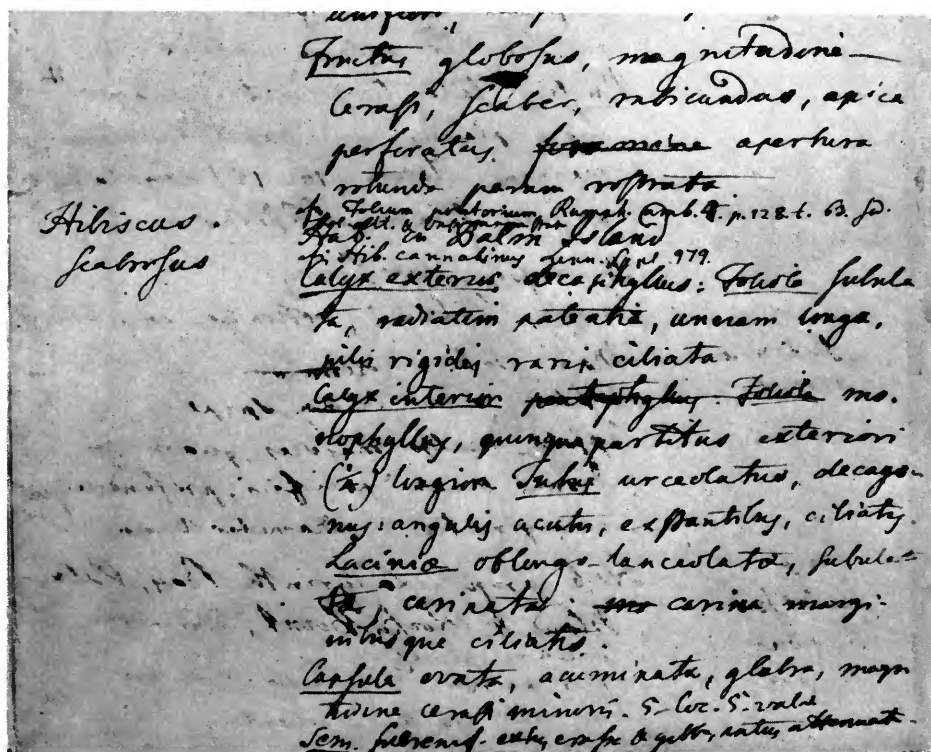 Fructus globosus, magnitudine
Cerasi, scaber, rubicundus, apice
perforatus foramine apertura
rotunda parum rostrata
Folium Rumph. amb. 4. p. 128. t. 63.
Hibiscus.
scabrosus
Hab. in Palm Island
Hib. cannabinus Linn. Sp. pl. 979.
Calyx exterus decaphyllus: Foliola subula
ta, radiatim patentia, unciam longa,
pilis rigidis raris ciliata
Calyx interior pentaphyllus. Foliola mo.
nophyllus, quinquepartitus exteriori
(½) longior Tubus urceolatus, decago-
nus: angulis acutis, expantibus, ciliatis
Laciniæ oblongo-lanceolatæ, subula=
tæ, carinatæ: carina margi-
nibusque ciliatis.
Capsula ovata, acuminata, glabra, magn
itudine cerasi minoris. 5-loc. 5-valv
Sem. extus & intus